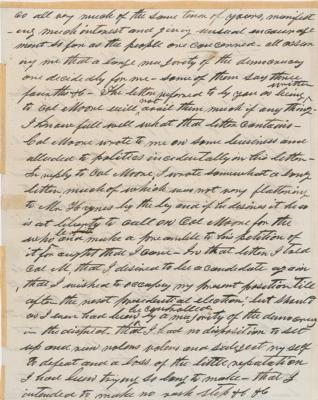 so all very much of the same tenor of yours, manifest
-ing much interest and giving unusual encourage
ment so far as the people are concerned - all assur
ing me that a large majority of the democracy
are decidedly for me - some of them say three
fourths &c - The letter referred to by you as being written
to Col Moore will not avail them much if any thing.
I know full well what that letter contains -
Col Moore wrote to me on some business and
alluded to politics incidentally in his letter -
In reply to Col Moore, I wrote somewhat a long
letter much of which was not very flattering
to Mr Haynes by the by and if he desires it he
is at liberty to call on Col Moore for the
whole and make a preamble to his petition of
it for aught that I care - In that letter I told
Col M, that I desired to be a candidate again
that I wished to occupy my present position till
after the next presidential election, but should
as I never had been by a majority of the democracy
in the district, that I had no disposition to set
up and run nolens volens and subject my self
to defeat and a loss of the little reputation
I had been trying so long to make - that I
intended to make no rash step &c &c